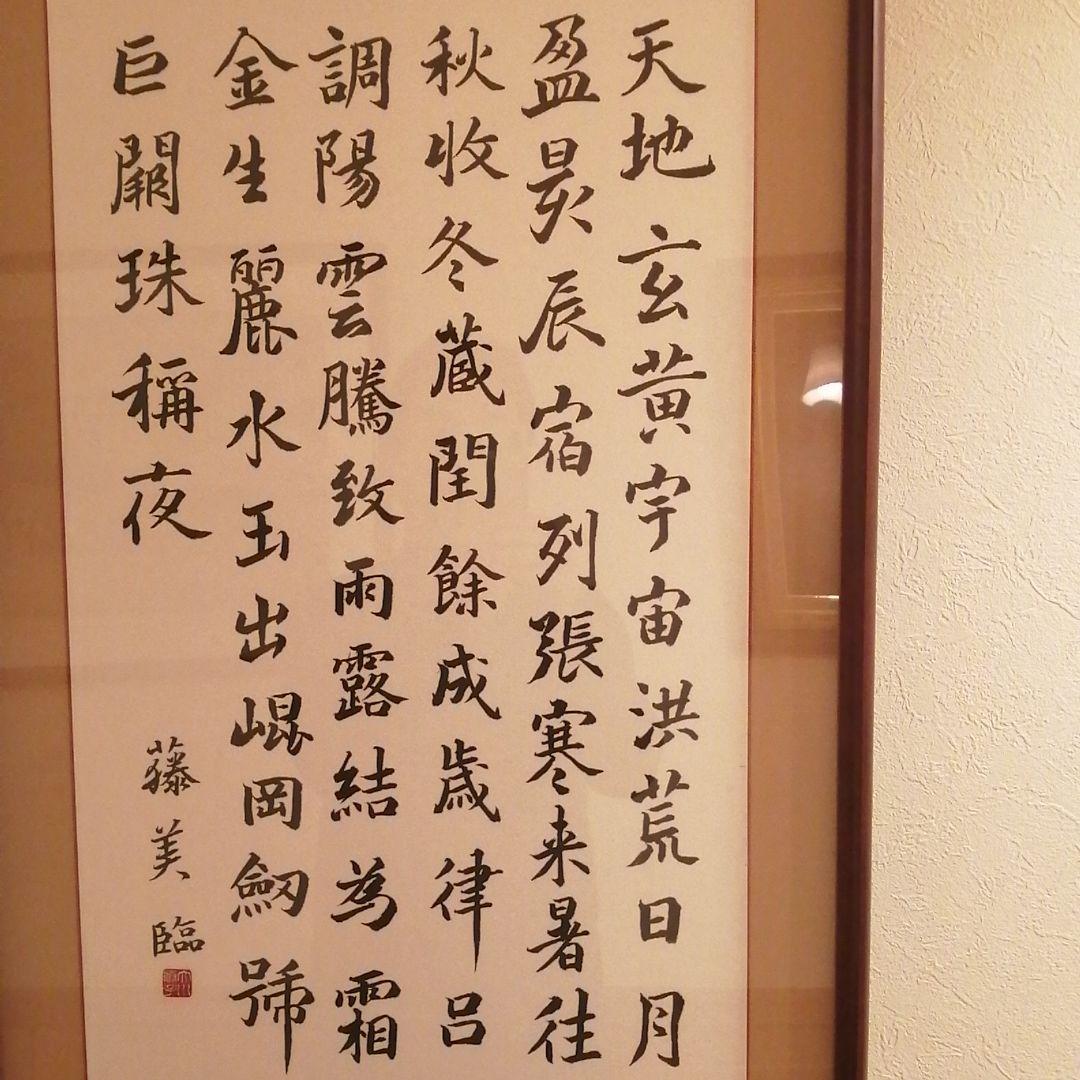 天地玄黄宇宙洪荒日月
盈昃辰宿列張寒来暑往
秋收冬蔵閏餘成歲律呂
調陽雲騰致雨露結為霜
金生麗水玉出崐岡劒號
巨闕珠稱夜
藤美臨